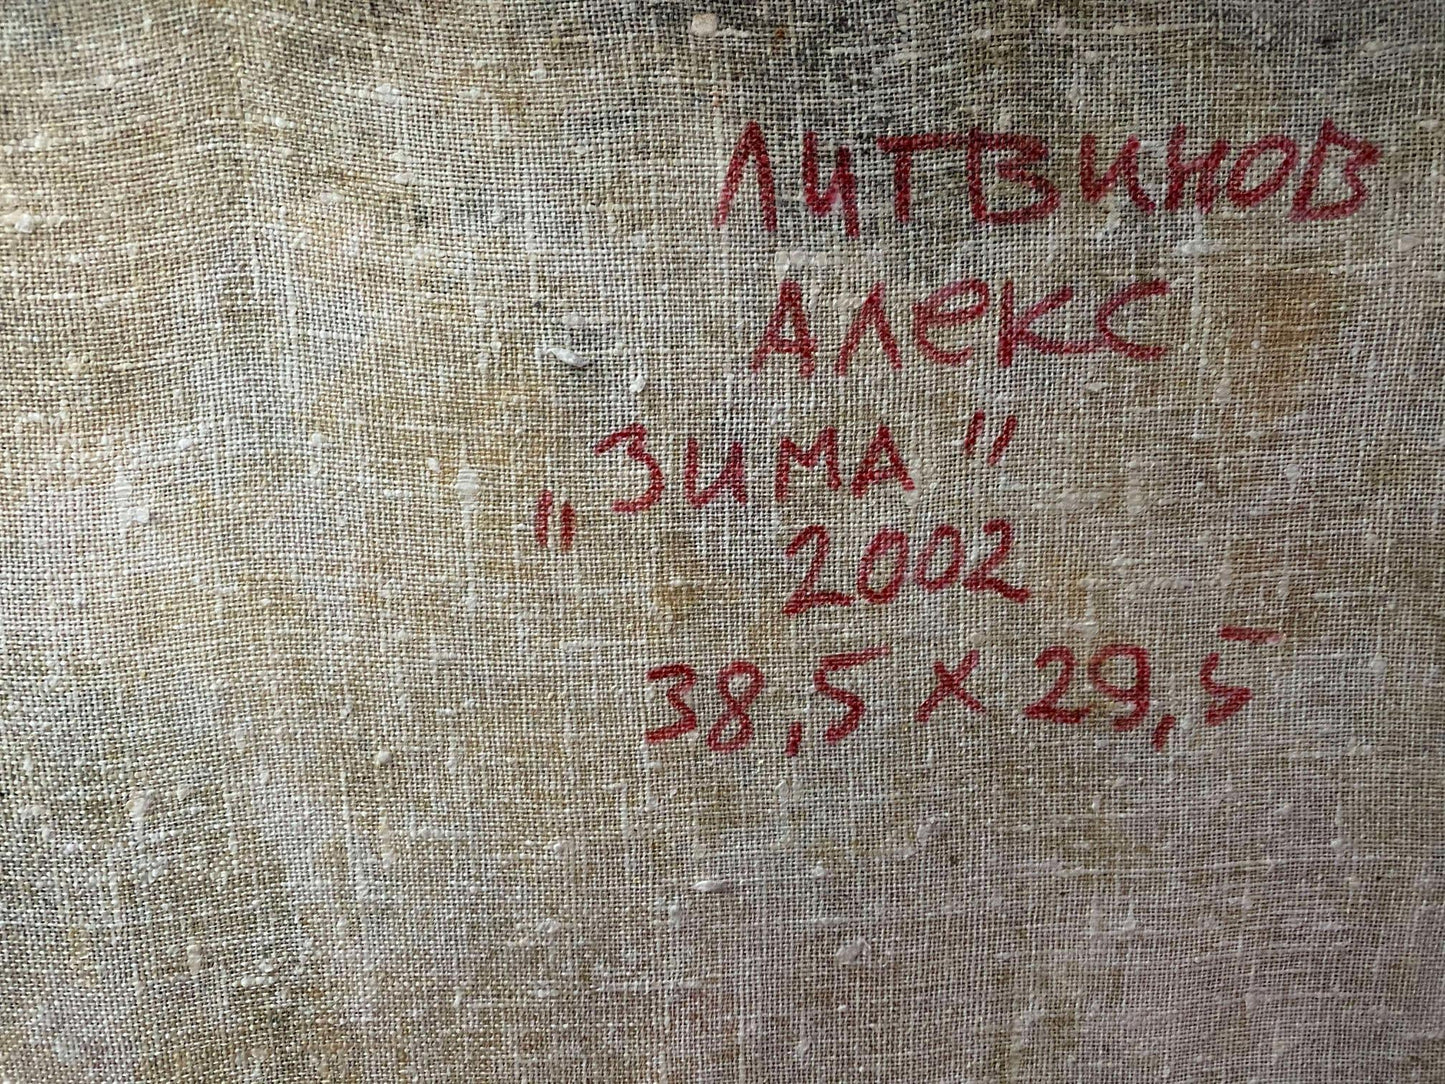 ЛИТВИНОВ
АЛЕКС
„ЗИМА"
2002
38,5 x 29,5